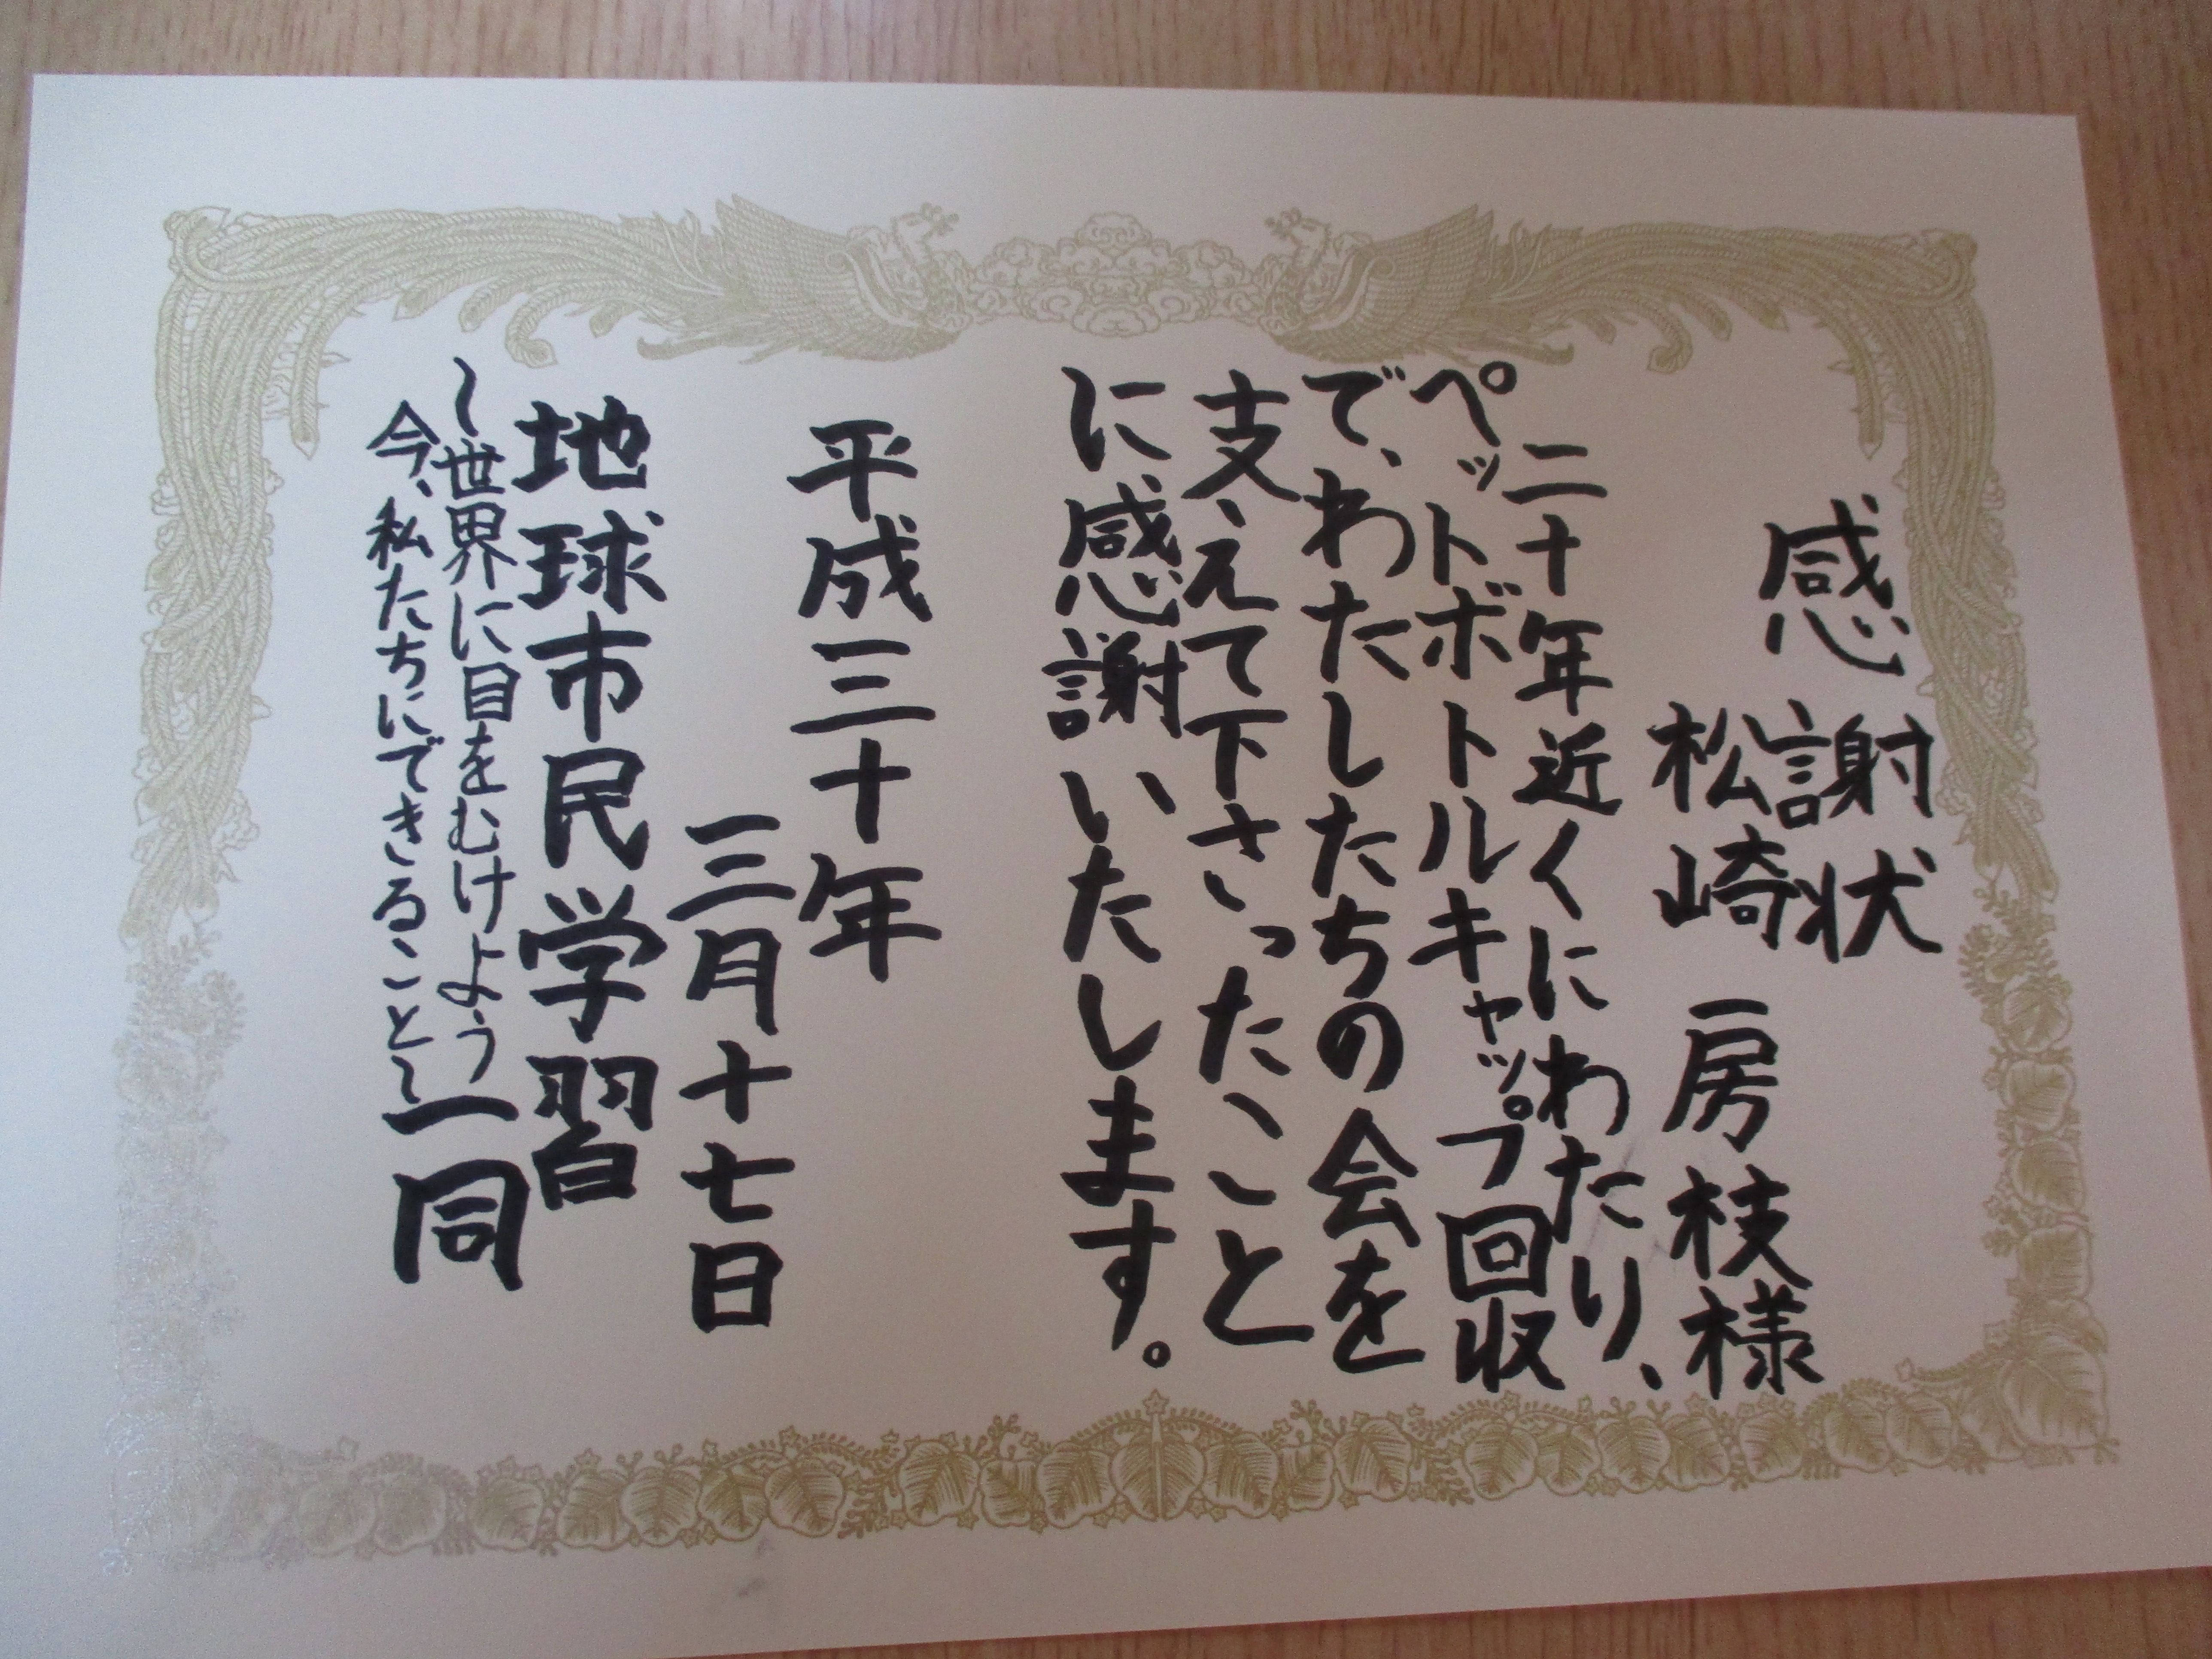 感謝状
松崎 房枝様
二十年近くにわたり、
ペットボトルキャップ回収
で、わたしたちの会を
支えて下さったこと
に感謝いたします。
平成三十年
三月十七日
地球市民学習
～世界に目をむけよう
今、私たちにできること～
一同